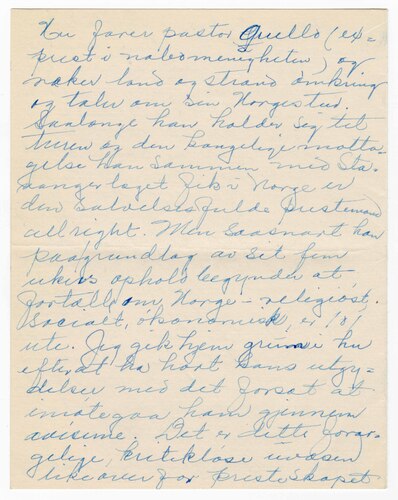 Nu farer pastor Quello (ex-
prest i nabomenigheten) og
raker land og strand omkring
og taler om sin Norgestur.
Saalænge han holder sig til
turen og den kongelige motta-
gelse han sammen med Sta-
vangerlaget fik i Norge er
den salvelsesfulde prestemand
all right. Men saasnart han
paa grundlag av sit fem
ukers ophold begynder at
fortælle om Norge - religiøst,
socialt, økonomisk, er
ute. Jeg gik hjem i hu
efter at ha hørt hans utgy-
delser med det forsæt at
imøtegaa ham gjennem
aviserne. Det er dette forar-
gelige, kritikløse uvæsen
likeoverfor presteskapet